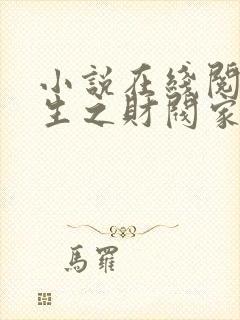 小說在綫閱
生之財閥家
馬羅